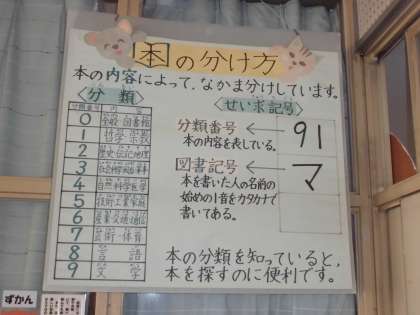 本の分け方
本の内容によって、なかま分けしています。
分類
せい求記号
分類番号
0 全般・図書館
1 哲学・宗教
2 歴史・伝記・地理
3
4 自然科学・医学
5
6 産業・交通・通信
7 芸術・体育
8 言語
9 文学
分類番号 ← 91
本の内容を表している。
図書記号 ← マ
本を書いた人の名前の
始めの1音をカタカナで
書いてある。
本の分類を知っていると、
本を探すのに便利です。
ずかん